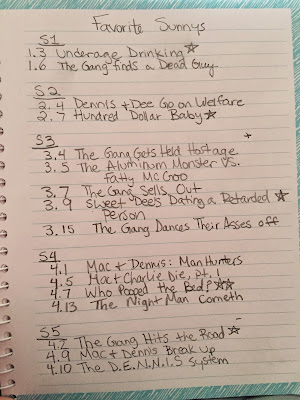 Favorite Sunnys
S1
1.3 Underage Drinking ☆
1.6 The Gang finds a Dead Guy
S2
2.4 Dennis + Dee Go on Welfare
2.7 Hundred Dollar Baby ☆
S3
3.4 The Gang Gets Held Hostage
3.5 The Aluminum Monster vs.
Fatty McGoo
3.7 The Gang Sells Out
3.9 Sweet Dee's Dating a Retarded ☆
Person
3.15 The Gang Dances Their Asses off
S4
4.1 Mac + Dennis: Man Hunters
4.5 Mac + Charlie Die, pt. 1
4.7 Who Pooped the Bed? ☆☆
4.13 The Night Man Cometh
S5
4.2 The Gang Hits the Road ☆
4.9 Mac + Dennis Break Up
4.10 The D.E.N.N.I.S System